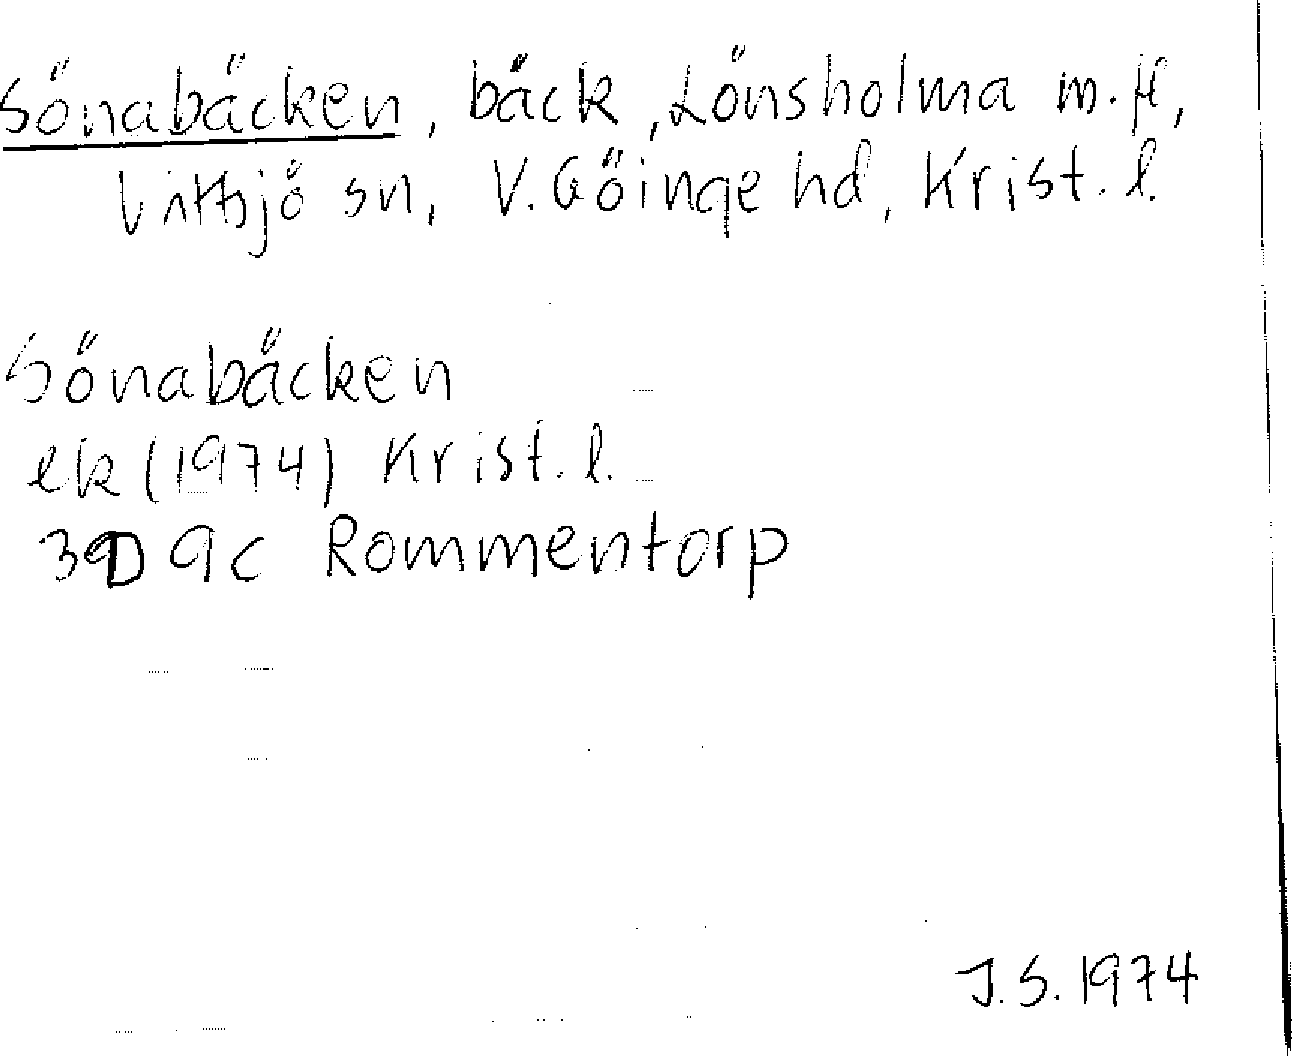 Sönabäcken, bäck, Lönsholma m.fl.,
Vittsjö sn, V. Göinge hd, Krist. l.
Sönabäcken
ek (1974) Krist. l.
3D 9c Rommentorp
J.S. 1974